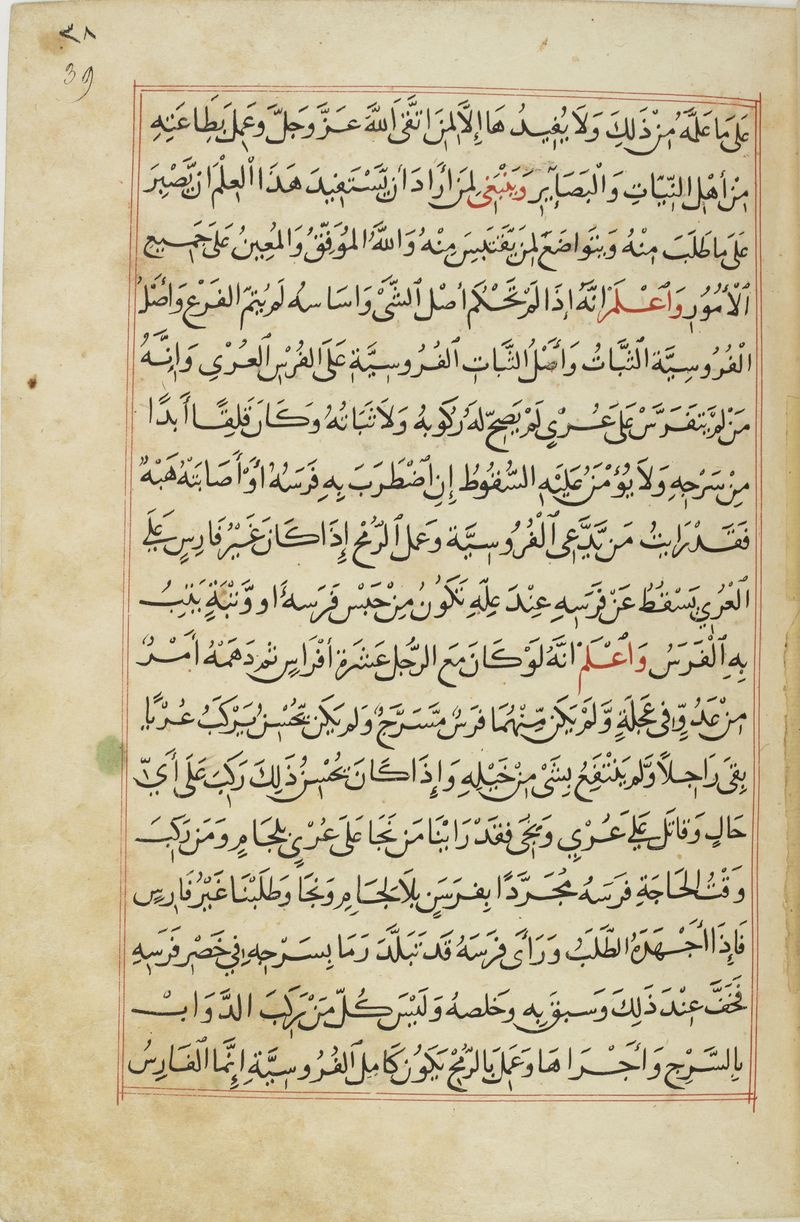 ٣٨
39
عَلَى مَا عَلَّمَهُ مِنْ ذَلِكَ وَلَا يُفِيدُ هَا إِلَّا لِمَنَ اتَّقَى اللَّهَ عَزَّ وَجَلَّ وعَمِلَ بَطِاعَتِهِ
مِنْ أَهْلِ النِّيَّاتِ وَالْبَصَايِرِ وَيَنْبَغِى لِمَنْ أَرَادَ أَنْ يَّسْتَفِيدَ هَذَا الْعِلْمَ انْ يَّصْبِرَ
عَلَى مَا طَلَبَ مِنْهُ وَيتَوَاضَعَ لِمَنْ يَّقْتَبِسَ مِنْهُ وَاللَّهُ الْمُوَفِّقُ وَالْمُعِينُ عَلَى جَمِيعِ
الْأُمُورِ وَاعْلَمْ انَّهُ إِذَا لَمْ تَحْكُم أَصْل الشَّىْ وَاسَاسه لَمْ يُتِمّ الفَرْع وَأَصْلُ
الْفُرُوسِيَّة الثَّبَاتُ وَأَصْلُ الثَّبَاتِ الفُرُوسِيَّة عَلَى الفَرَسْ العُرْيِ وَإِنَّهُ
مَنْ لَمْ يَتَفَرَّسْ عَلَى عُرْيٍ لَمْ يَصِحّ لَهُ رُكُوبهُ وَلَا ثَبَاتُهُ وَكَانَ قَلِقًا أَبَدًا
مِنْ سَرْجِهِ وَلَا يُؤْمَنُ عَلَيْهِ السُّقُوطُ إِنِ اضْطَرَبَ بِهِ فَرَسُهُ أَوْ أَصَابَتْهُ هَبَّهٌ
فَقَدْ رَايتُ مَنْ يَّدَّعِى الْفُرُوسِيَّة وَعَمل الرُّمْحِ إِذَا كَانَ غَيْرُ فَارِسٍ عَلَى
الْعُرْيِ يَسْقُطُ عَنْ فَرَسِهِ عِنْدَ عِلّةٍ تَكُونُ مِنْ حَبْس فَرَسهُ او وَّثْبَةٍ يَثِبُ
بِهِ الْفَرَسُ وَاعْلَمْ انَّهُ لَوْ كَانَ مَعَ الرَّجُل عَشَرَة أَفْرَاسٍ ثم دَهَمَهُ أَمْرٌ
مِنْ عَدُوٍّ فِى عَجَلَةٍ وَّلَمْ يَكُن مِّنْهُمَا فَرَسٌ مُّسَرَّجٌ وَلم يَكُن يُّحْسِنُ يَرْكَبُ عُرْيًا
بِقىَ رَاجِلًا وَّلَمْ يَنْتَفِعْ بِشَىْ مِنْ خَيْلِهِ وَإِذَا كَانَ يُحْسِنُ ذَلِكَ رَكِبَ عَلَى أَيِّ
حَالٍ وَقَاتَل عَلَى عُرْيٍ وَنَجَى فقَدْ رَايْنَا مَن نَجَا عَلَى عُرْيٍ بلجَامٍ وَمَن رَكِبَ
وَقْتُ الحَاجَةِ فَرَسَهُ مُجَرَّدًا بِفرسَنٍ بلَا لجَامِ وَنَجَا وَطَلَبْنَا غَيْرُ فَارِس
فَإِذَا أَجْهَدَهُ الطَّلَبُ وَرَأَى فَرَسَهُ قَد تَبَلَّدَ رَمَا بِسَرْجِهِ فِي خَصْر فَرَسِهِ
فَخَفَّ عِنْدَ ذَلِكَ وَسَبقَ بِهِ وَخلصهُ وَلَيْسَ كُلّ مَنْ رَكِبَ الدَّوَابْ
بِالسَّرْجِ وَأَجْرَاهَا وَعَمَلَ بِالرُّمْحْ يَكُونُ كَامِل الفُرُوسِيَّةِ إِنَّمَا الْفَارِسُ